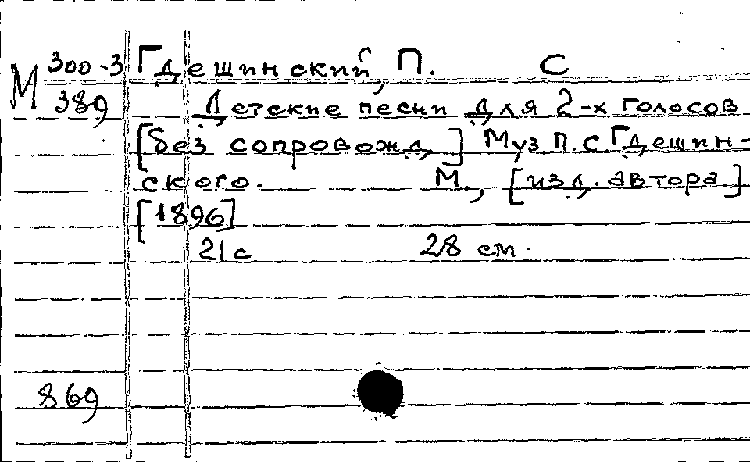 М 300-3 Гдешинский, П. С
389 Детские песни для 2-х голосов
[без сопровожд.] Муз П. С Гдешин-
ского. М., [изд. автора]
[1896]
21 с 28 см.
869